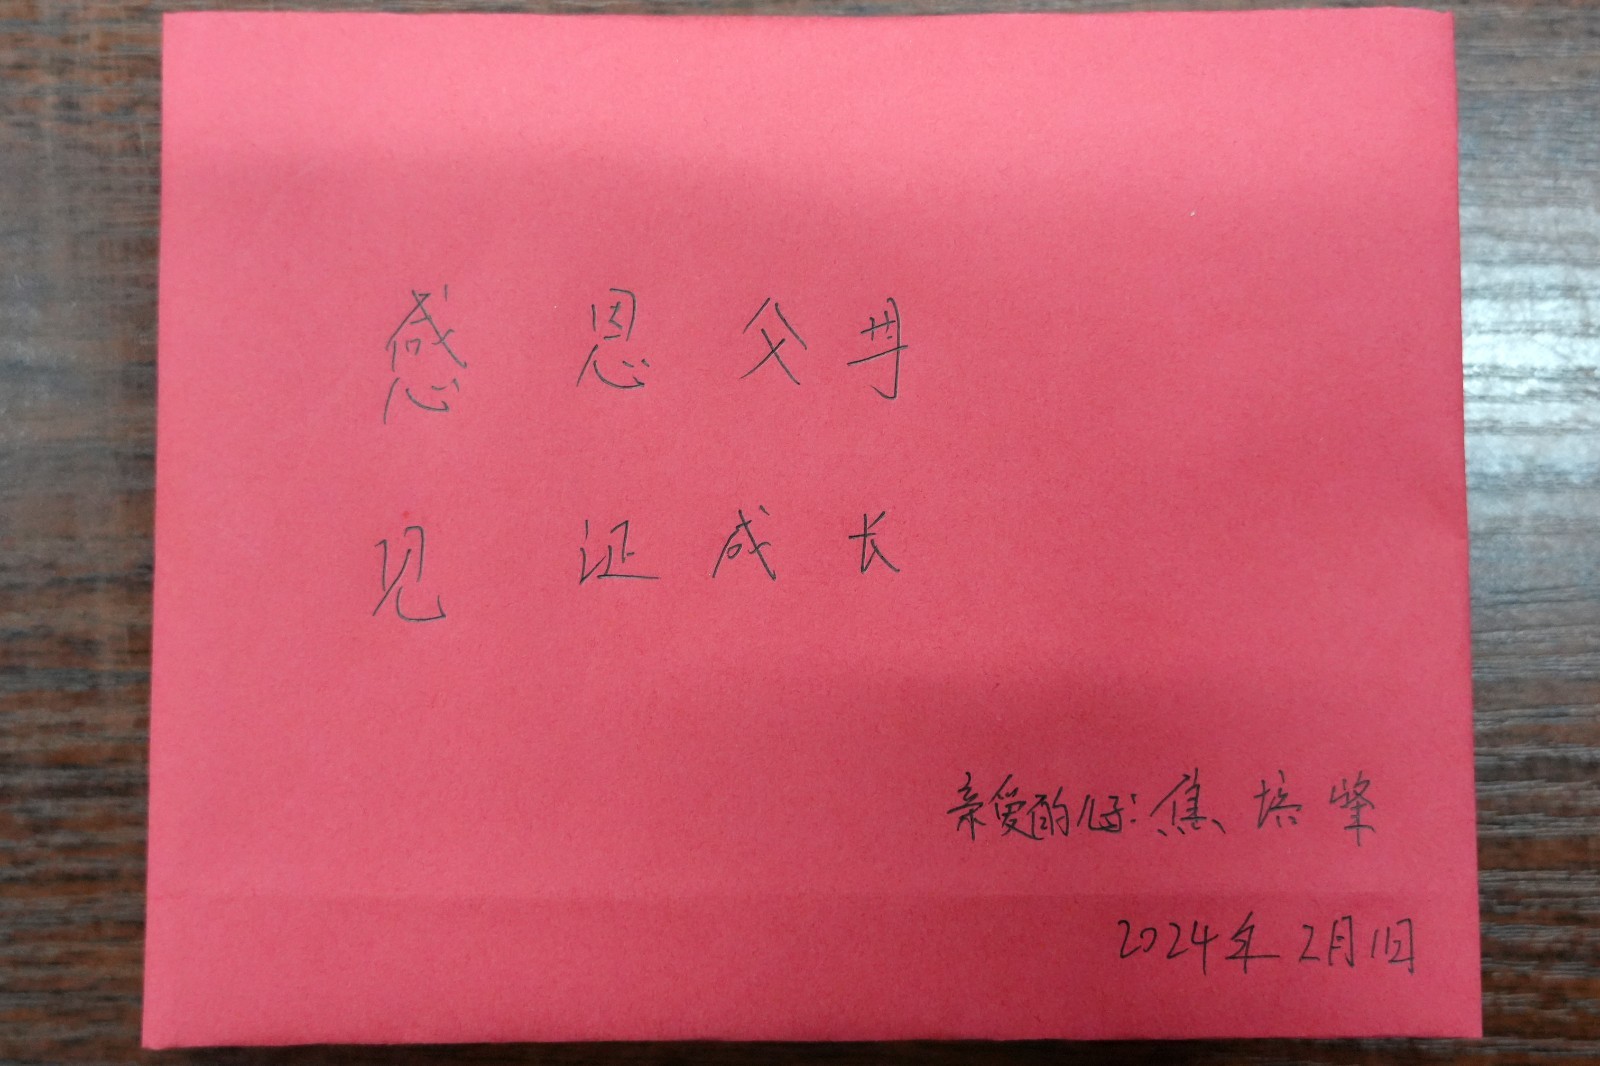 感恩父母
见证成长
亲爱的儿子：焦培峰
2024年2月1日